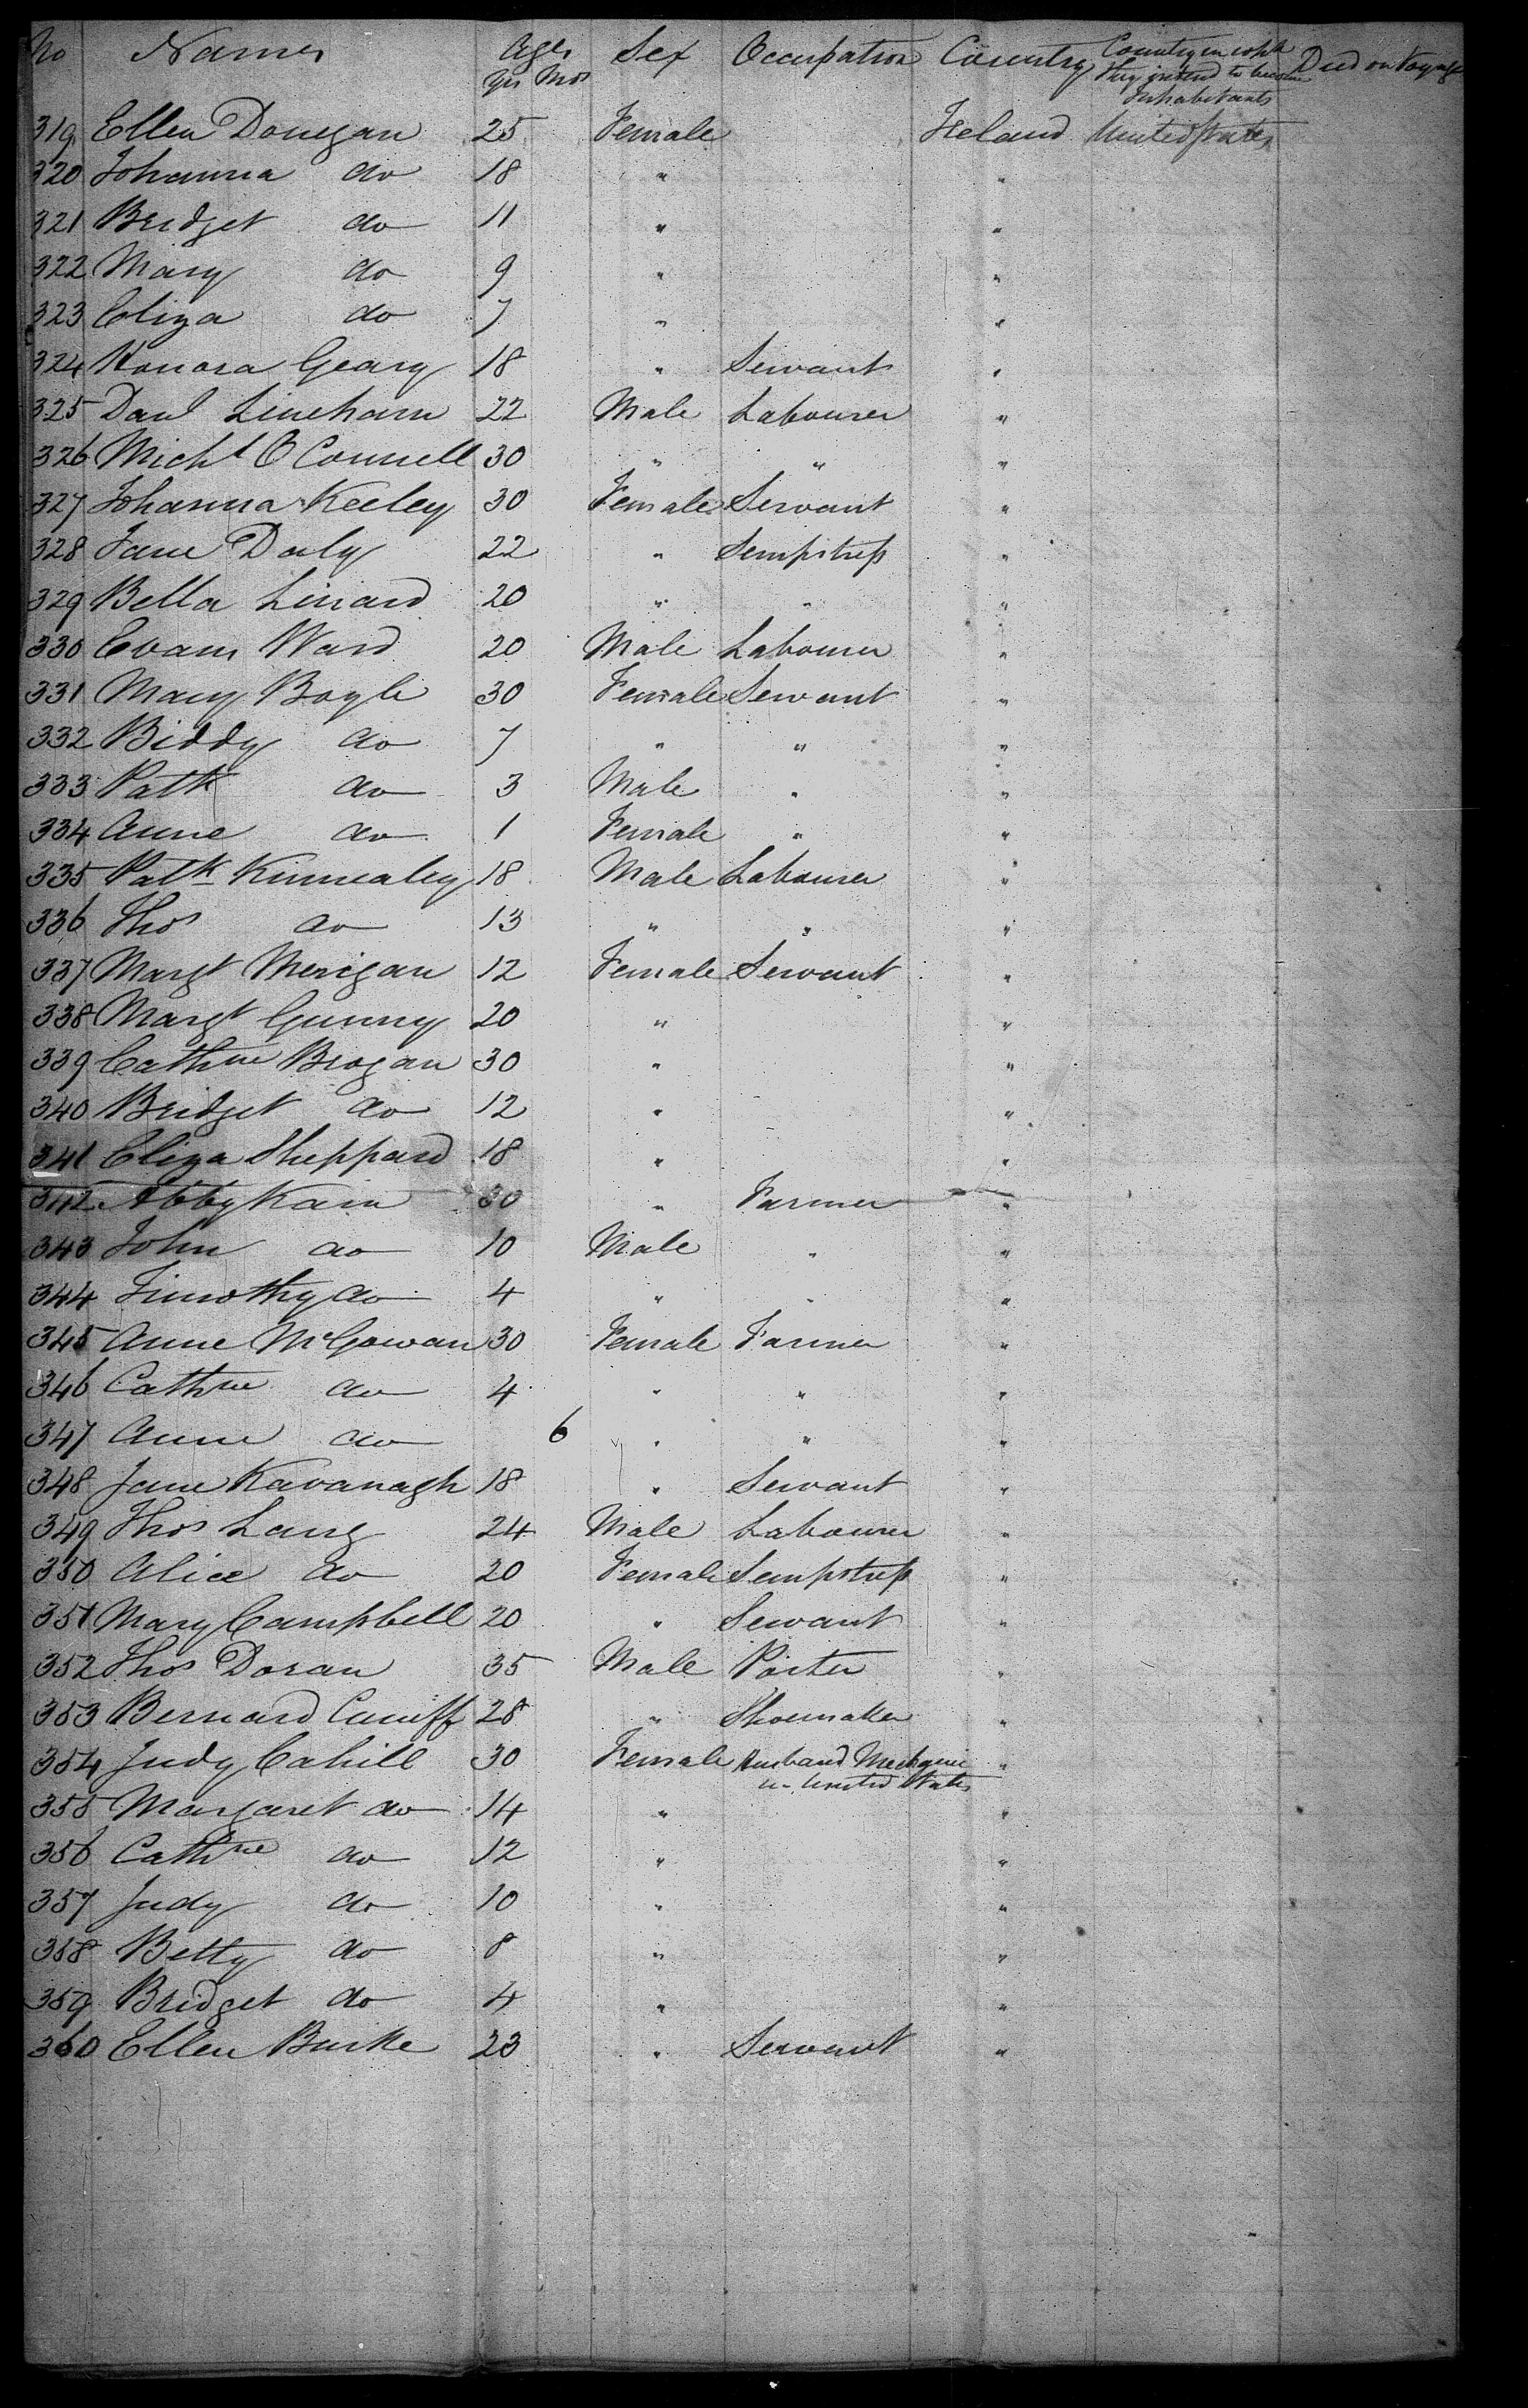 No Names Ages Sex Occupation Country Country in which Died on Voyage
Yrs Mos they intend to become
Inhabitants
319 Ellen Donegan 25 Female Ireland United States
320 Johanna do 18 " "
321 Bridget do 11 " "
322 Mary do 9 " "
323 Eliza do 7 " "
324 Honora Geary 18 " Servant "
325 Danl Linehan 22 Male Labourer "
326 Michl O Connell 30 " " "
327 Johanna Keeley 30 Female Servant "
328 Jane Daly 22 " Sempstress "
329 Bella Linard 20 " " "
330 Evans Ward 20 Male Labourer "
331 Mary Boyle 30 Female Servant "
332 Biddy do 7 " " "
333 Patk do 3 Male " "
334 Anne do 1 Female " "
335 Patk Kinnealey 18 Male Labourer "
336 Thos do 13 " " "
337 Margt Merigan 12 Female Servant "
338 Margt Gunny 20 " "
339 Cathne Brogan 30 " "
340 Bridget do 12 " "
341 Eliza Sheppard 18 " "
342 Abby Kain 30 " Farmer "
343 John do 10 Male " "
344 Timothy do 4 " " "
345 Anne McGowan 30 Female Farmer "
346 Cathne do 4 " " "
347 Anne do 6 " " "
348 Jane Kavanagh 18 " Servant "
349 Thos Lang 24 Male Labourer "
350 Alice do 20 Female Sempstress "
351 Mary Campbell 20 " Servant "
352 Thos Doran 35 Male Porter "
353 Bernard Cuniff 28 " Shoemaker "
354 Judy Cahill 30 Female Husband Mechanic "
in United States
355 Margaret do 14 " "
356 Cathne do 12 " "
357 Judy do 10 " "
358 Betty do 8 " "
359 Bridget do 4 " "
360 Ellen Burke 23 " Servant "